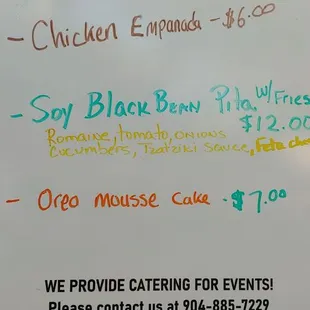 - Chicken Empanada - $6.00
- Soy Black Bean Pita w/ Fries
$12.00
Romaine, tomato, onions
Cucumbers, Tzatziki sauce, Feta
- Oreo mousse Cake - $7.00
WE PROVIDE CATERING FOR EVENTS!
Please contact us at 904-885-7229